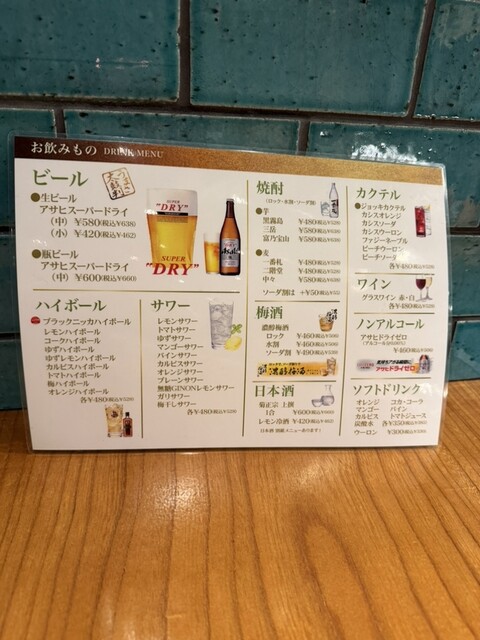 お飲みもの DRINK MENU
ビール
●生ビール
アサヒスーパードライ
(中) ¥580(税込¥638)
(小) ¥420(税込¥462)
●瓶ビール
アサヒスーパードライ
(中) ¥600(税込¥660)
SUPER
"DRY"
SUPER
"DRY"
ハイボール
ブラックニッカハイボール
レモンハイボール
コークハイボール
ゆずハイボール
ゆずレモンハイボール
カルピスハイボール
トマトハイボール
梅ハイボール
オレンジハイボール
各¥480(税込¥528)
サワー
レモンサワー
トマトサワー
ゆずサワー
マンゴーサワー
パインサワー
カルピスサワー
オレンジサワー
プレーンサワー
無糖GINONレモンサワー
ガリサワー
梅干しサワー
各¥480(税込¥528)
焼酎
(ロック・水割・ソーダ割)
●芋
黒霧島 ¥480(税込¥528)
三岳 ¥580(税込¥638)
富乃宝山 ¥580(税込¥638)
●麦
一番札 ¥480(税込¥528)
二階堂 ¥480(税込¥528)
中々 ¥580(税込¥638)
ソーダ割は +¥50(税込¥55)
梅酒
濃醇梅酒
ロック ¥460(税込¥506)
水割 ¥460(税込¥506)
ソーダ割 ¥490(税込¥539)
濃醇梅酒
日本酒
菊正宗 上撰
1合 ¥600(税込¥660)
レモン冷酒 ¥420(税込¥462)
日本酒 別紙メニューあります!
カクテル
●ジョッキカクテル
カシスオレンジ
カシスソーダ
カシスウーロン
ファジーネーブル
ピーチウーロン
ピーチソーダ
各¥480(税込¥528)
ワイン
グラスワイン 赤・白
各¥480(税込¥528)
ノンアルコール
アサヒドライゼロ
(アルコール分0.00%)
¥460(税込¥506)
アサヒドライゼロ
ソフトドリンク
オレンジ コカ・コーラ
マンゴー パイン
カルピス トマトジュース
炭酸水 各¥350(税込¥385)
ウーロン ¥300(税込¥330)